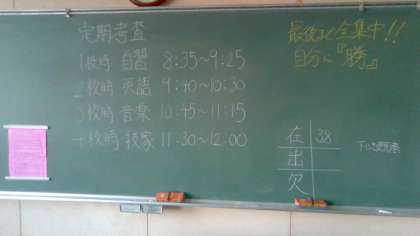 定期考査
1校時 自習 8:35~9:25
2校時 英語 9:40~10:30
3校時 音楽 10:45~11:15
4校時 技家 11:30~12:00
最後まで全集中!!
自分に『勝』
在 38
出
欠